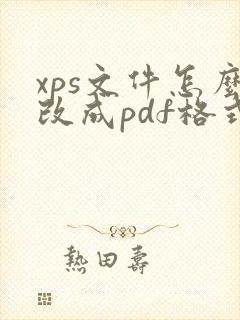 xps文件怎麽
改成pdf格式
熱田壽